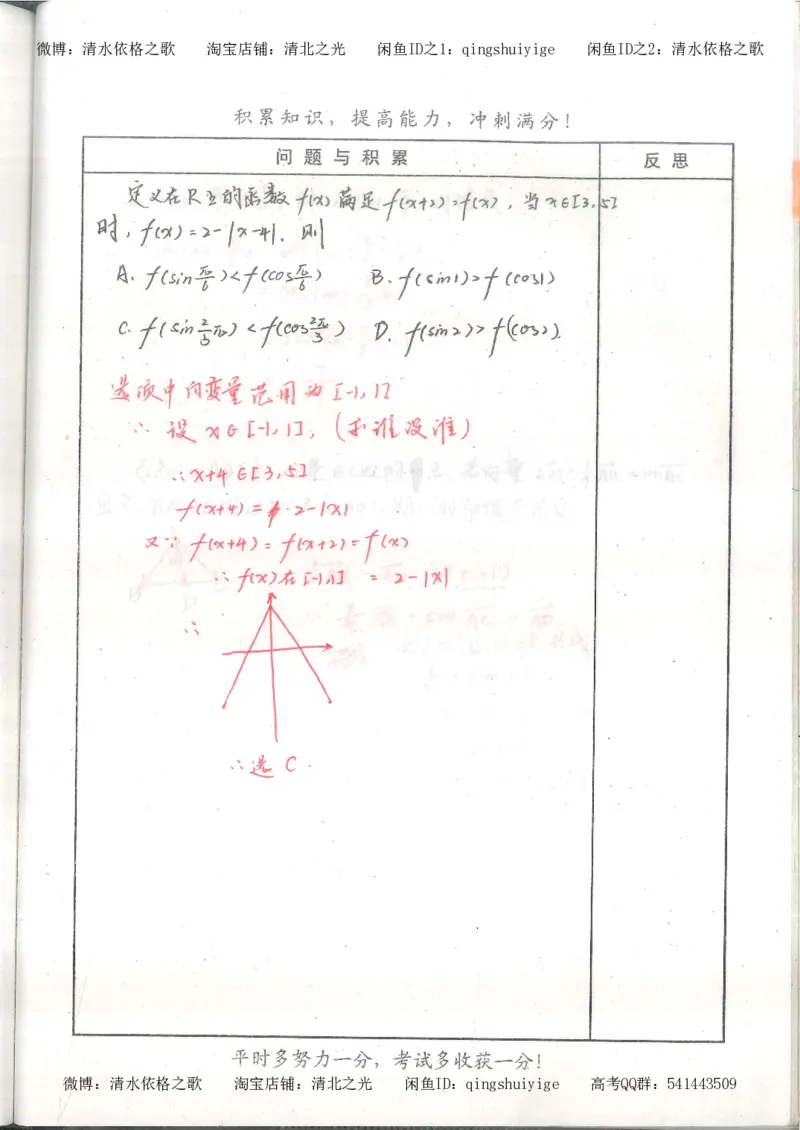 微博：清水依格之歌 淘宝店铺：清北之光 闲鱼ID之1：qingshuiyige 闲鱼ID之2：清水依格之歌
积累知识，提高能力，冲刺满分！
问题与积累 反思
定义在R上的函数f(x)满足f(x+2)=f(x)，当x∈[3,5]
时，f(x)=2-|x-4|. 则
A. f(sin π/6)<f(cos π/6) B. f(sin1)>f(cos1)
C. f(sin 2/3 π)<f(cos 2π/3) D. f(sin2)>f(cos2).
选项中内变量范围为[-1,1]
∴设x∈[-1,1]，(求谁设谁)
∴x+4∈[3,5]
f(x+4)=2-|x|
又∵f(x+4)=f(x+2)=f(x)
∴f(x)在[-1,1] =2-|x|
∴
∴选C.
平时多努力一分，考试多收获一分！
微博：清水依格之歌 淘宝店铺：清北之光 闲鱼ID：qingshuiyige 高考QQ群：541443509